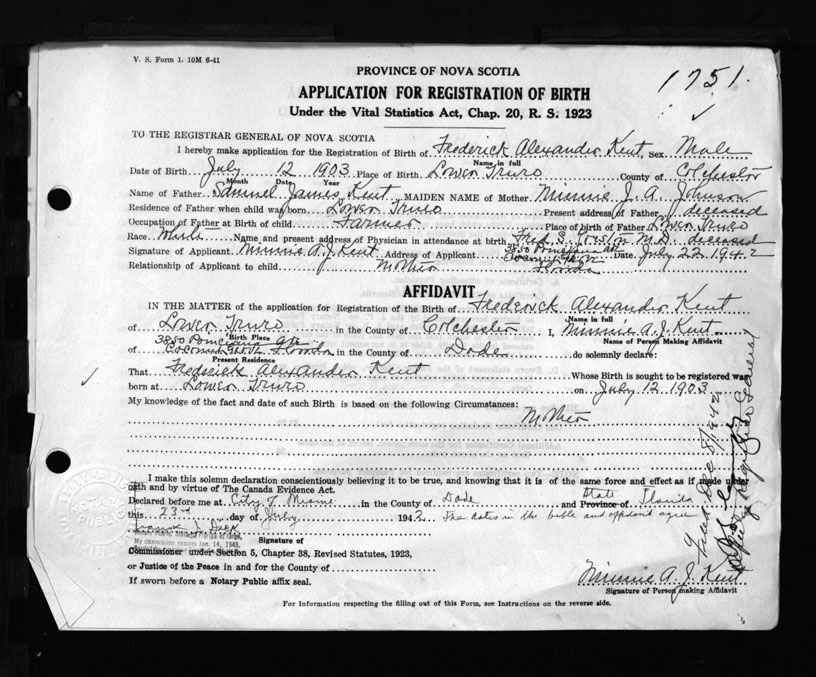 V. S. Form 1. 10M 6-41
1751.
PROVINCE OF NOVA SCOTIA
APPLICATION FOR REGISTRATION OF BIRTH
Under the Vital Statistics Act, Chap. 20, R. S. 1923
TO THE REGISTRAR GENERAL OF NOVA SCOTIA
I hereby make application for the Registration of Birth of Frederick Alexander Kent Sex Male
Name in full
Date of Birth July 12 1903 Place of Birth Lower Truro County of Colchester
Month Date Year
Name of Father Samuel James Kent MAIDEN NAME of Mother Minnie J. A. Johnson
Residence of Father when child was born Lower Truro Present address of Father deceased
Occupation of Father at Birth of child Farmer Place of birth of Father Lower Truro
Race White Name and present address of Physician in attendance at birth Fred S. M.D. deceased
Signature of Applicant Minnie A. J. Kent Address of Applicant 3850 Poinciana Ave Coconut Grove Florida Date July 22 1942
Relationship of Applicant to child mother
AFFIDAVIT
IN THE MATTER of the application for Registration of the Birth of Frederick Alexander Kent
Name in full
of Lower Truro in the County of Colchester I, Minnie A. J. Kent
Birth Place Name of Person Making Affidavit
3850 Poinciana Ave
of Coconut Grove Florida in the County of Dade do solemnly declare:
Present Residence
That Frederick Alexander Kent Whose Birth is sought to be registered was
born at Lower Truro on July 12 1903
My knowledge of the fact and date of such Birth is based on the following Circumstances:
Mother
I make this solemn declaration conscientiously believing it to be true, and knowing that it is of the same force and effect as if made under
oath and by virtue of The Canada Evidence Act.
Declared before me at City of Miami in the County of Dade and Province of State Florida
this 23rd day of July 1942 The dates in the bible and affidavit agree
My commission expires Jan. 14, 1945.
Signature of
Commissioner under Section 5, Chapter 38, Revised Statutes, 1923,
or Justice of the Peace in and for the County of
If sworn before a Notary Public affix seal.
Minnie A. J. Kent
Signature of Person making Affidavit
For Information respecting the filling out of this Form, see Instructions on the reverse side.
Dec 8/1942
Deputy Registrar General